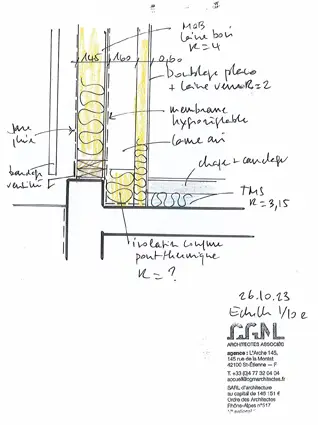 MOB
laine bois
R = 4
145
160
0,60
Doublage placo
+ laine verre R = 2
membrane
hygroréglable
pare
pluie
lame air
bardage
vertical
chape + carrelage
TMS
R = 3,15
isolation coupure
pont thermique
R = ?
26.10.23
Echelle 1/10 e
ARCHITECTES ASSOCIÉS
agence : L'Arche 145,
145 rue de la Montat
42100 St-Étienne — F
T. +33 (0)4 77 32 04 04
accueil@cgmarchitectes.fr
SARL d'architecture
au capital de 146 151 €
Ordre des Architectes
Rhône-Alpes n°517